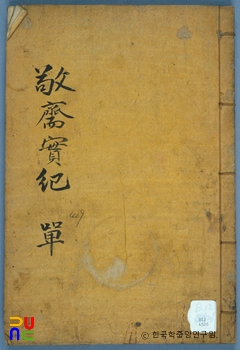 敬齋實紀 單
ⓒ 한국학중앙연구원